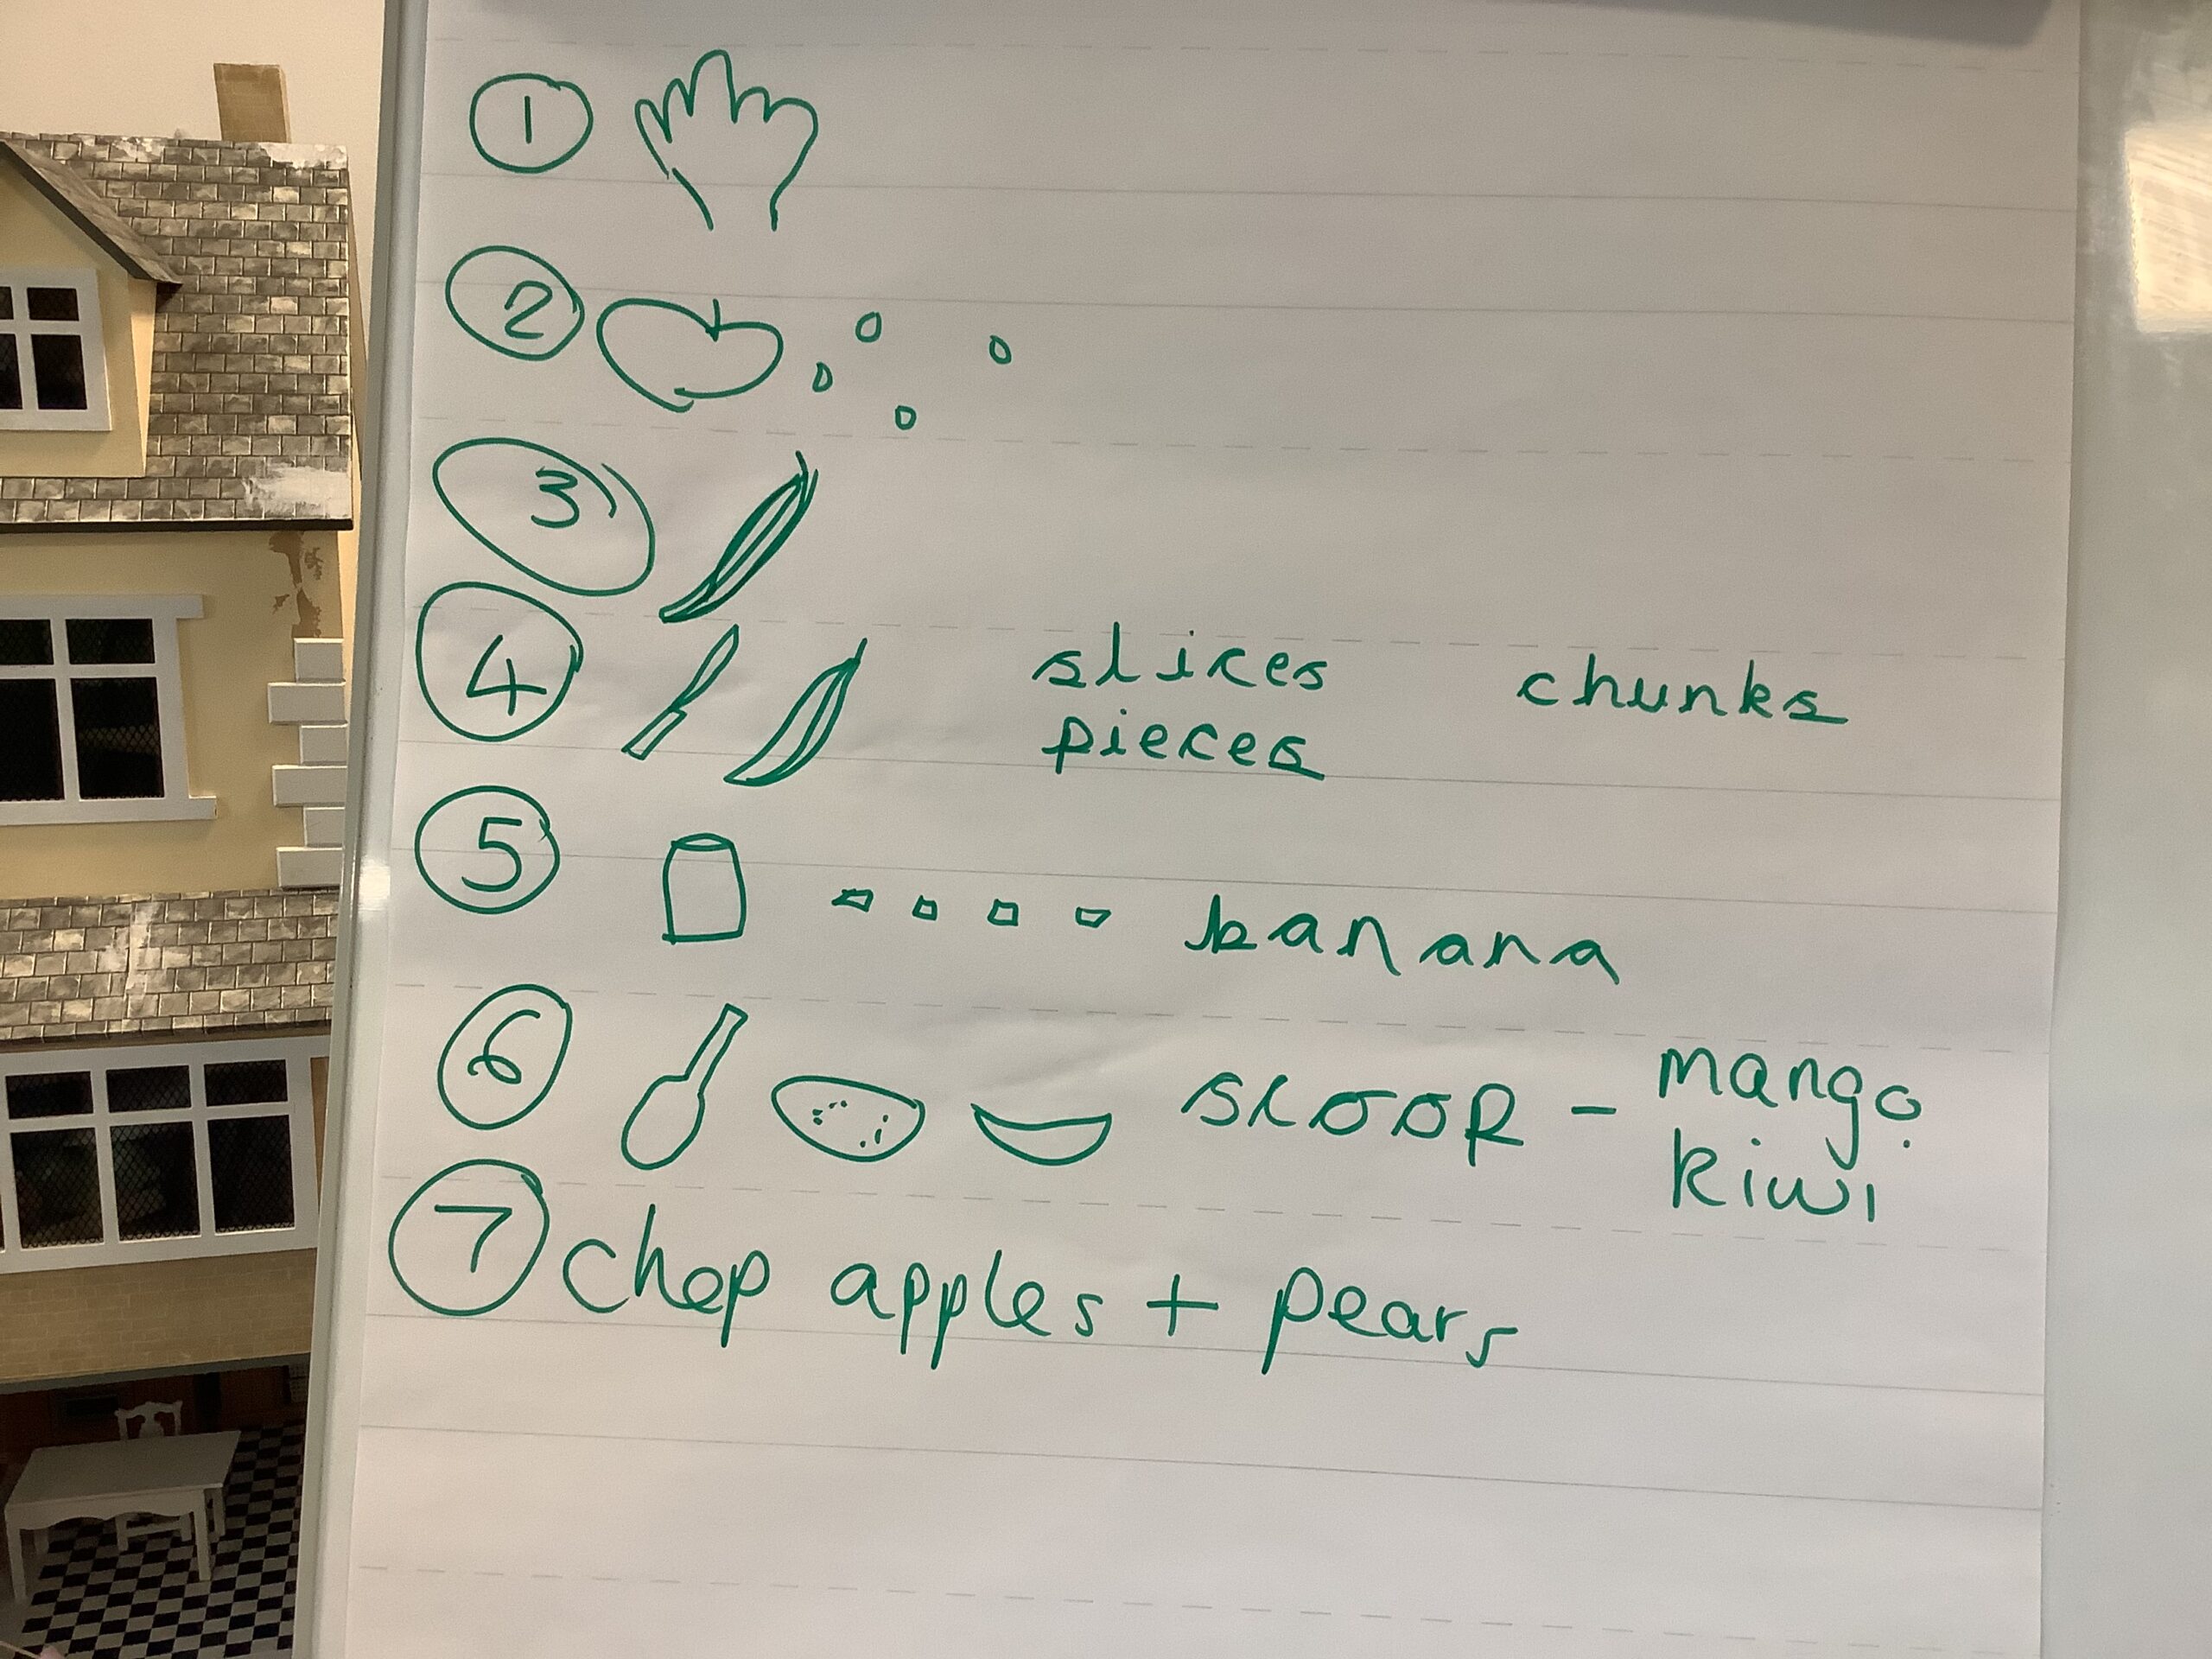 1
2
3
4 slices chunks
pieces
5 banana
6 scoop - mango
kiwi
7 chop apples + pears